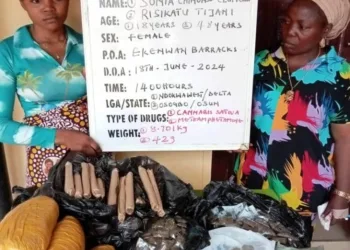 NAME: ① SUNIA
② RISIKATU TIJANI
AGE: ① 18 YEARS ② 48 YEARS
SEX: FEMALE
P.O.A: EKENWAN BARRACKS
D.O.A: 18TH - JUNE - 2024
TIME: 1400HOURS
LGA/STATE: ① NDOKWA WEST/DELTA
② OSOGBO/OSUN
TYPE OF DRUGS: ① CANNABIS SATIVA
②
WEIGHT: ① 8.701KG
② 42g